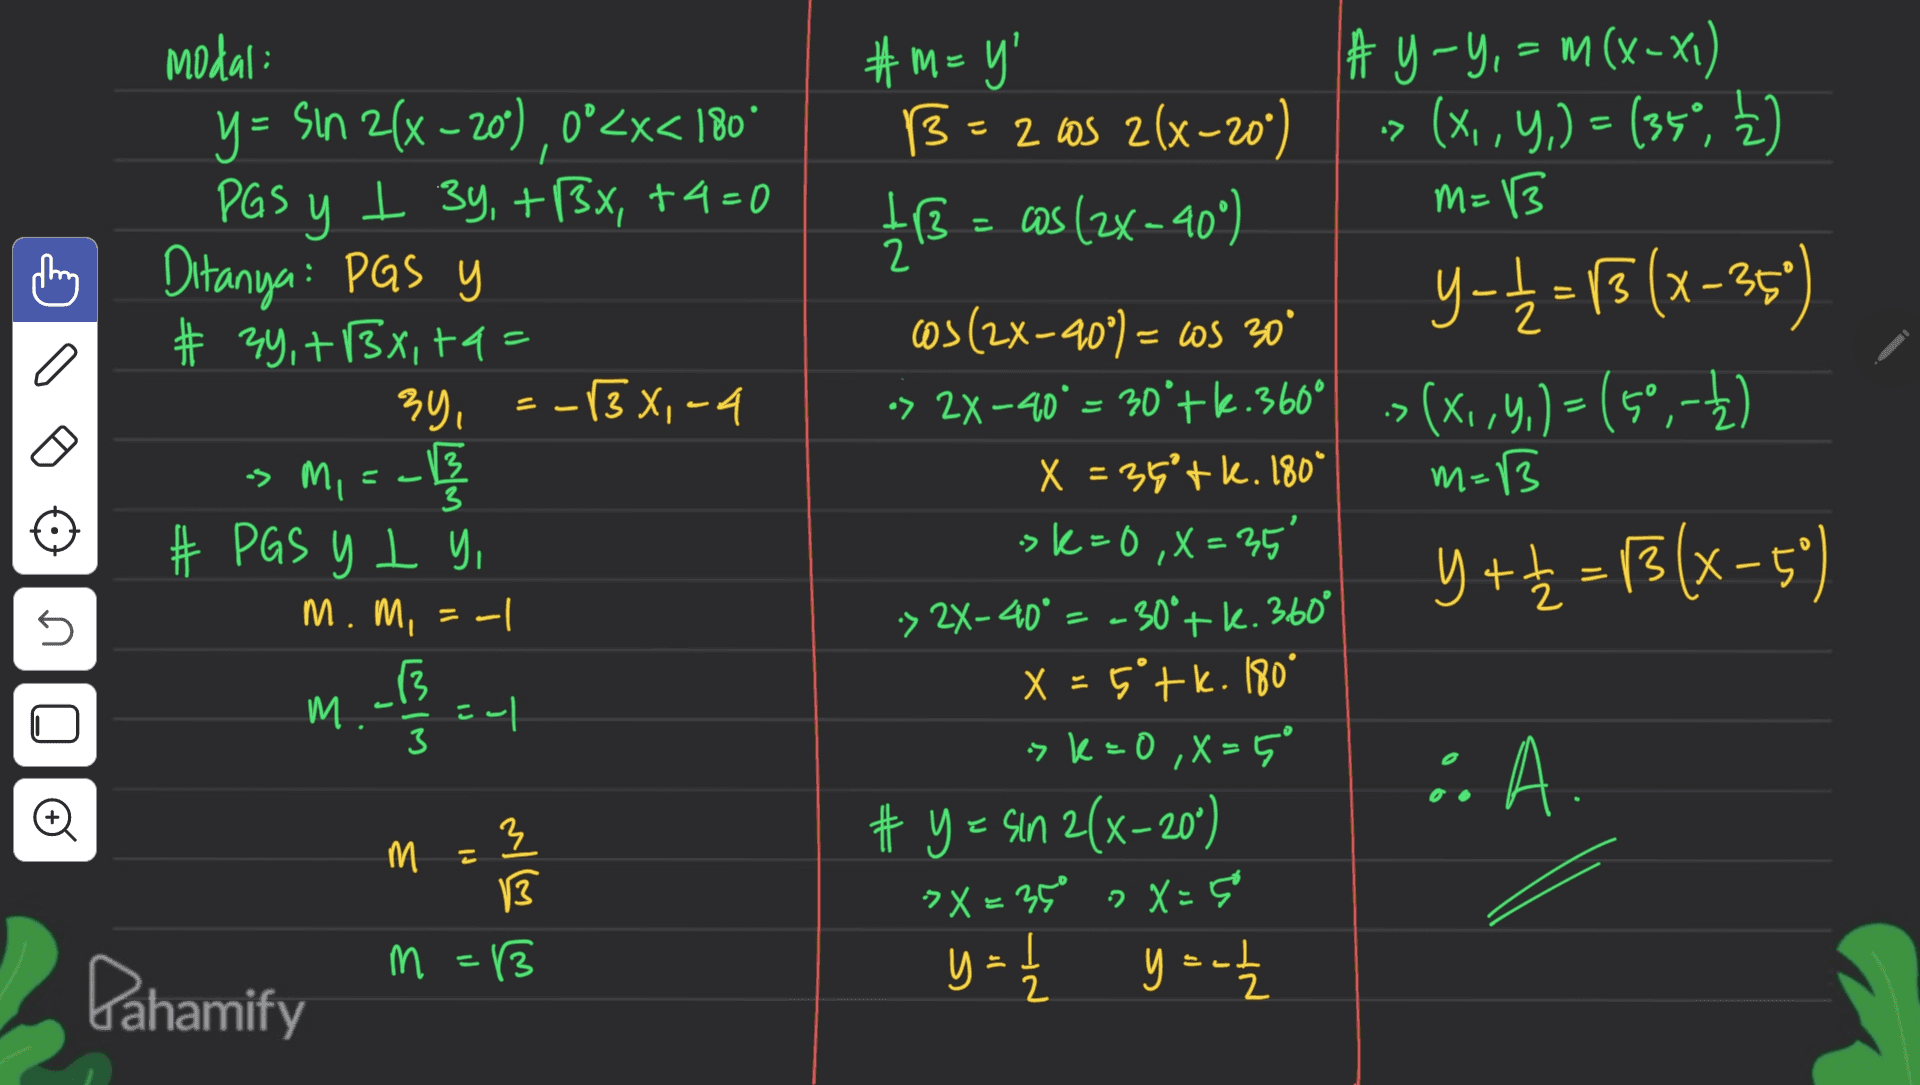 modal:
y = sin 2(x – 20°), 0° < x < 180°
PGS y ⊥ 3y₁ + √3x₁ + 4 = 0
Ditanya: PGS y
# 3y₁ + √3x₁ + 4 =
3y₁ = -√3 x₁ - 4
-> m₁ = -√3/3
# PGS y ⊥ y₁
m . m₁ = -1
m . -√3/3 = -1
m = 3/√3
m = √3
# m = y'
√3 = 2 cos 2(x-20°)
1/2 √3 = cos (2x - 40°)
cos (2x - 40°) = cos 30°
-> 2x - 40° = 30° + k.360°
x = 35° + k. 180°
-> k = 0, x = 35°
-> 2x - 40° = -30° + k. 360°
x = 5° + k. 180°
-> k = 0, x = 5°
# y = sin 2(x-20°)
> x = 35° > x = 5°
y = 1/2 y = -1/2
# y - y₁ = m (x - x₁)
-> (x₁, y₁) = (35°, 1/2)
m = √3
y - 1/2 = √3 (x - 35°)
-> (x₁, y₁) = (5°, -1/2)
m = √3
y + 1/2 = √3 (x - 5°)
∴ A.
Pahamify